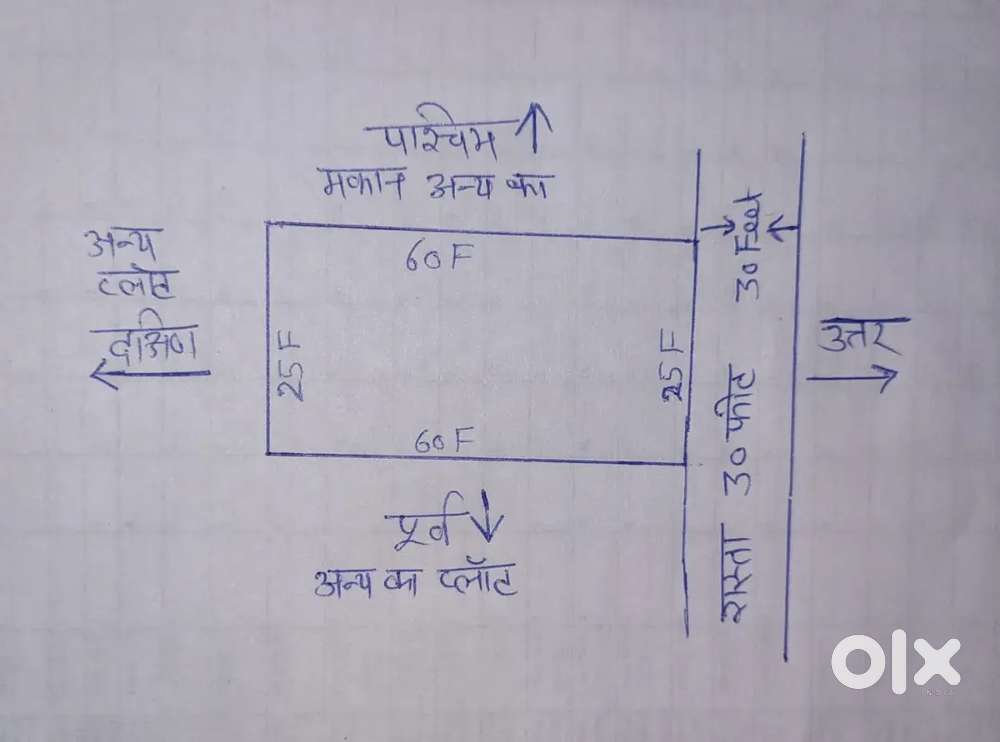 पाश्चिम
मकान अन्य का
अन्य
प्लॉट
दक्षिण
60 F
25 F
25 F
60 F
30 Feet
रास्ता 30 फीट
उत्तर
पूर्व
अन्य का प्लॉट
olx
INDIA